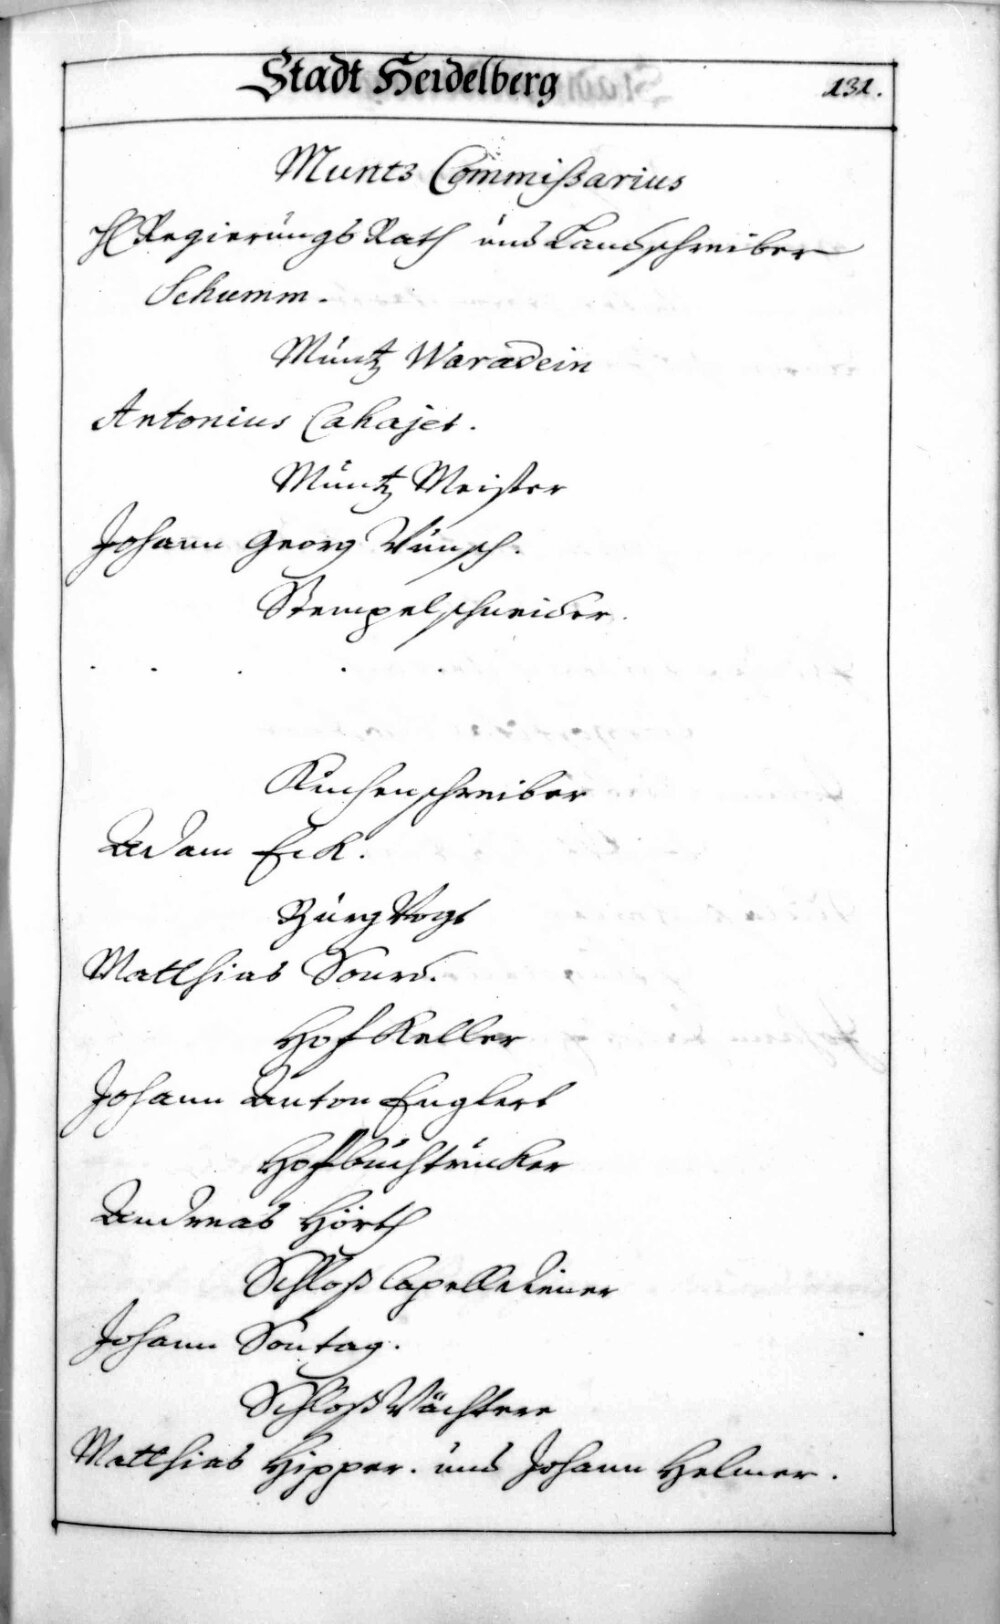 Stadt Heidelberg
131.
Muntz Commißarius
H Regierüngs Rath und Landschreiber
Schumm.
Müntz Waradein
Antonius Cahajet.
Müntz Meister
Johann Georg Wünsch.
Stempelschneider.
Kuchenschreiber
Adam Eck.
Bürg Vogt
Matthias Sourd.
Hof Keller
Johann Anton Englert
Hofbüchtrücker
Andreas Hörth
Schloß Capelldiener
Johann Sontag.
Schloß Wächtere
Matthias Hipper. und Johann Helmer.